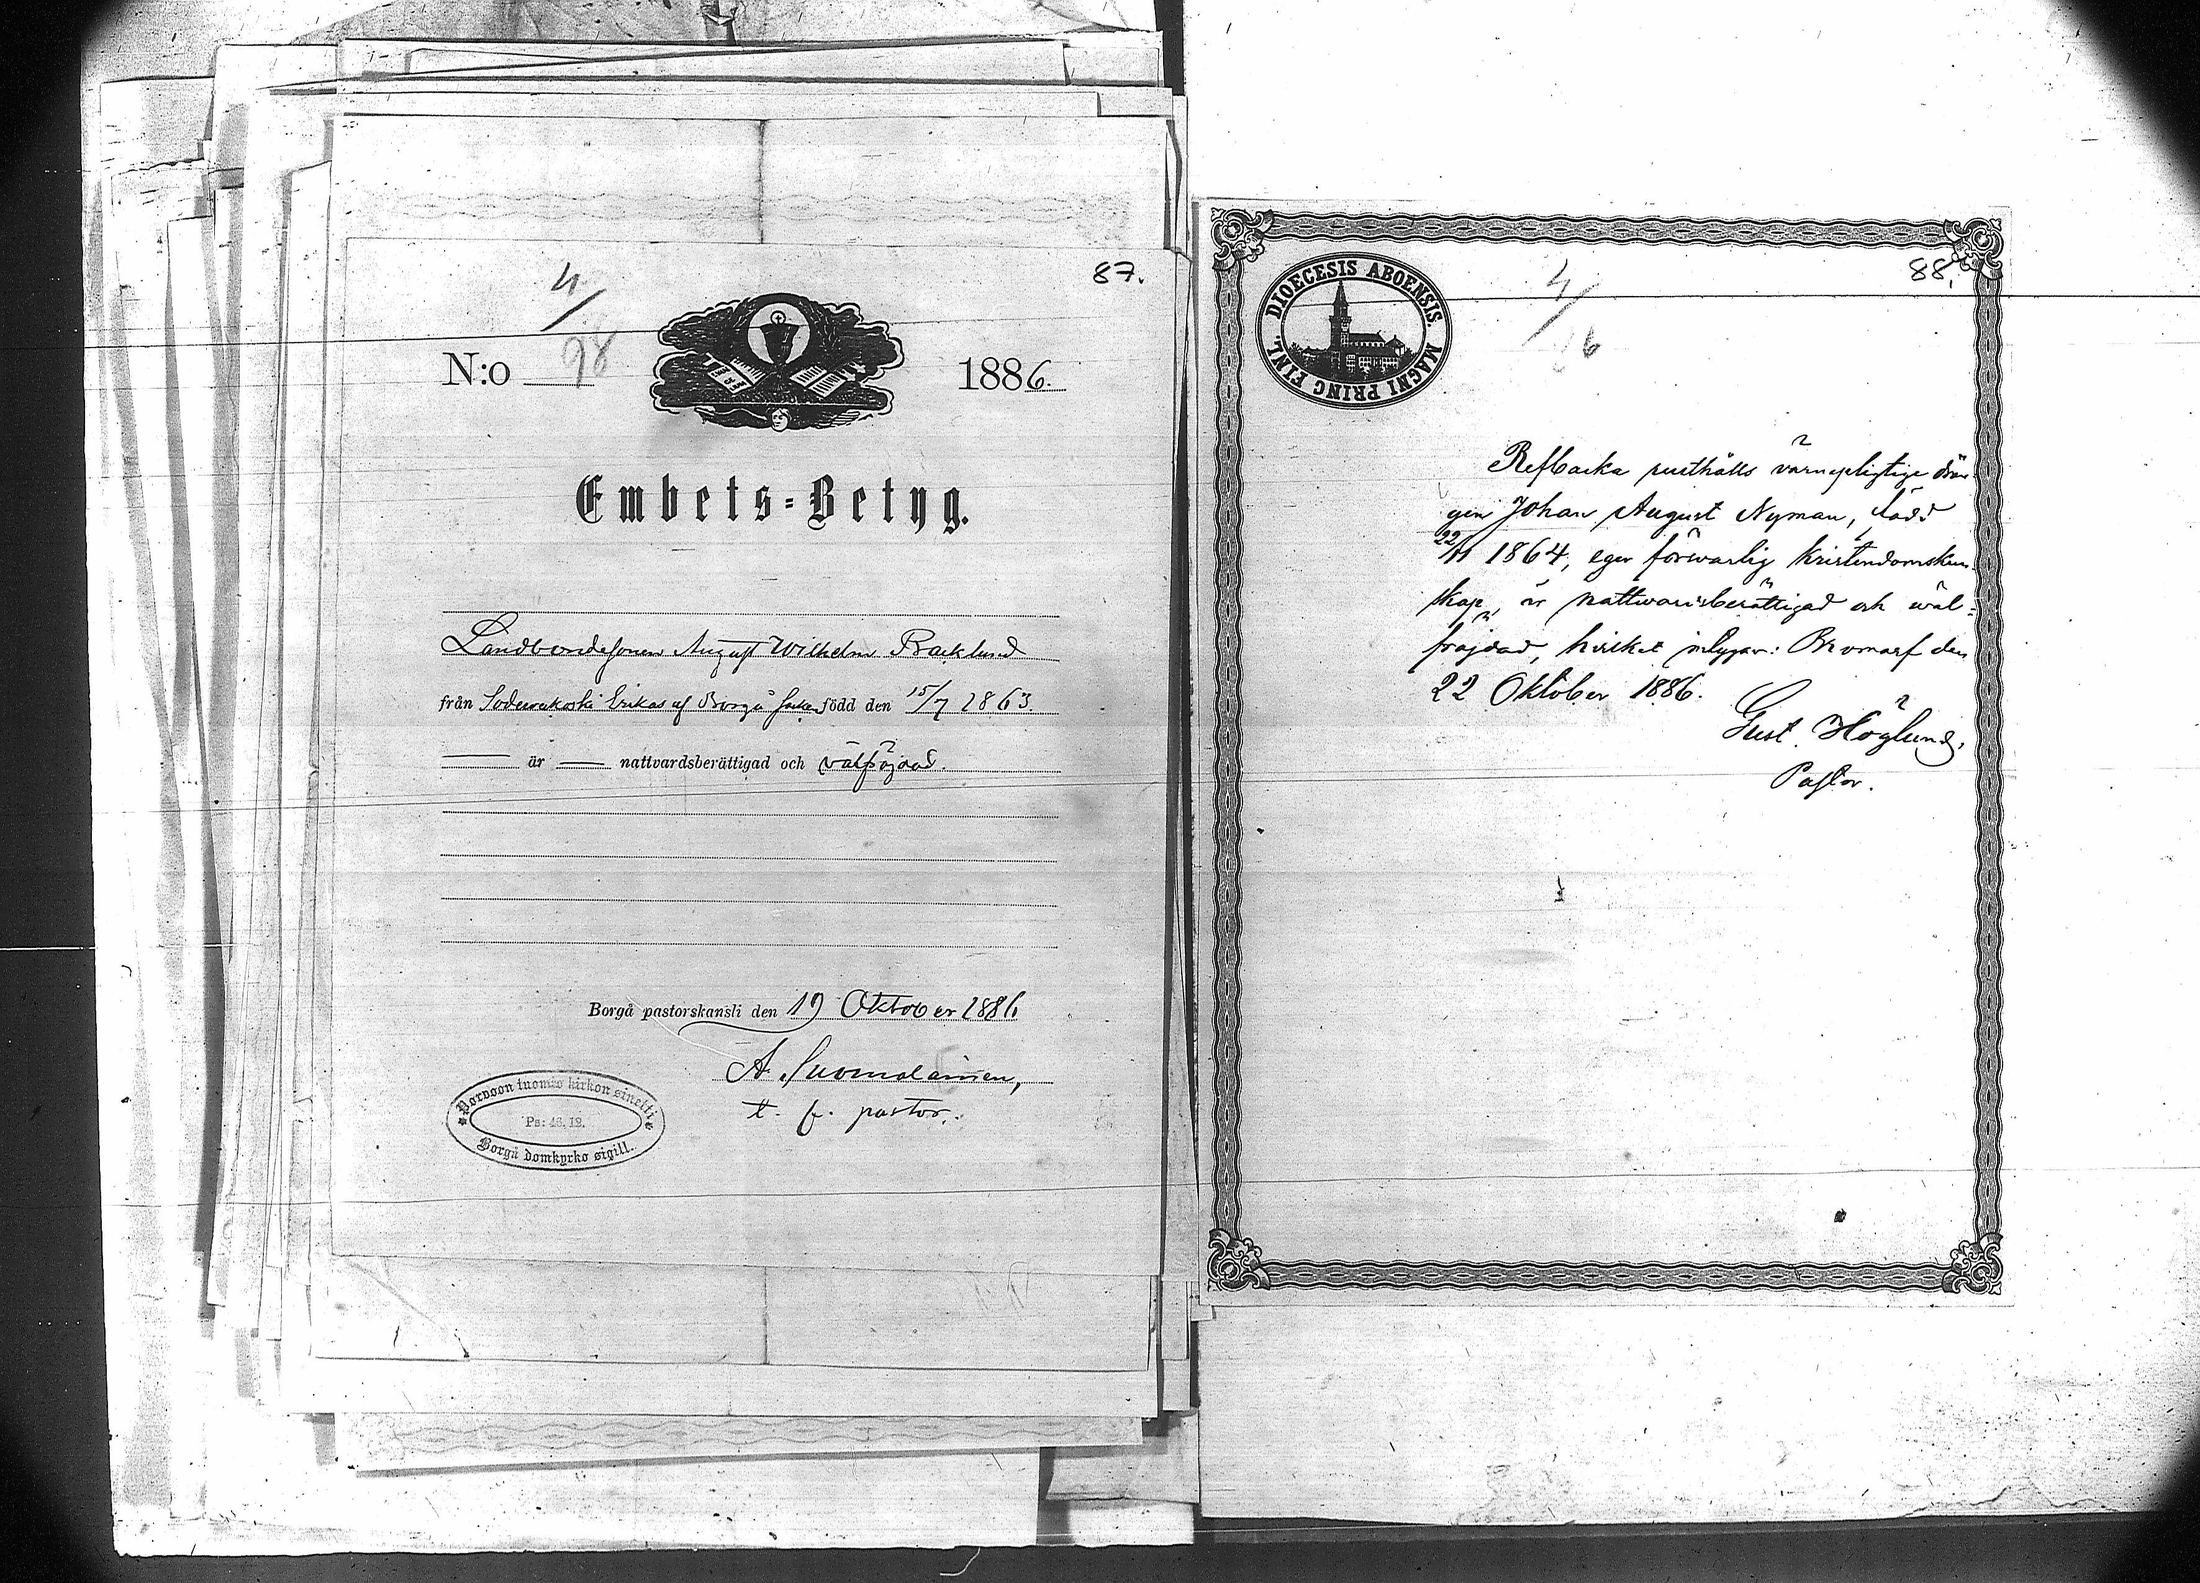 87.
4/98
N:o 1886.
Embets=Betyg.
Landbondesonen August Wilhelm Backlund
från Söderveckoski Erikas af Borgå socken född den 15/7 1863.
är nattvardsberättigad och välfrejdad.
Borgå pastorskansli den 19 Oktober 1886
A. Suomalainen,
t. f. pastor.
Porvoon tuomio kirkon sinetti
Ps: 46. 12.
Borgå domkyrko sigill.
88.
4/16
DIOECESIS ABOENSIS. MAGNI PRINC FINL.
Refbacka rusthålls värnepligtige drän-
gen Johan August Nyman, född
22/11 1864, eger försvarlig kristendomskun-
skap, är nattvardsberättigad och wäl-
frejdad, hvilket intygar: Bromarf den
22 Oktober 1886.
Gust. Höglund,
Pastor.